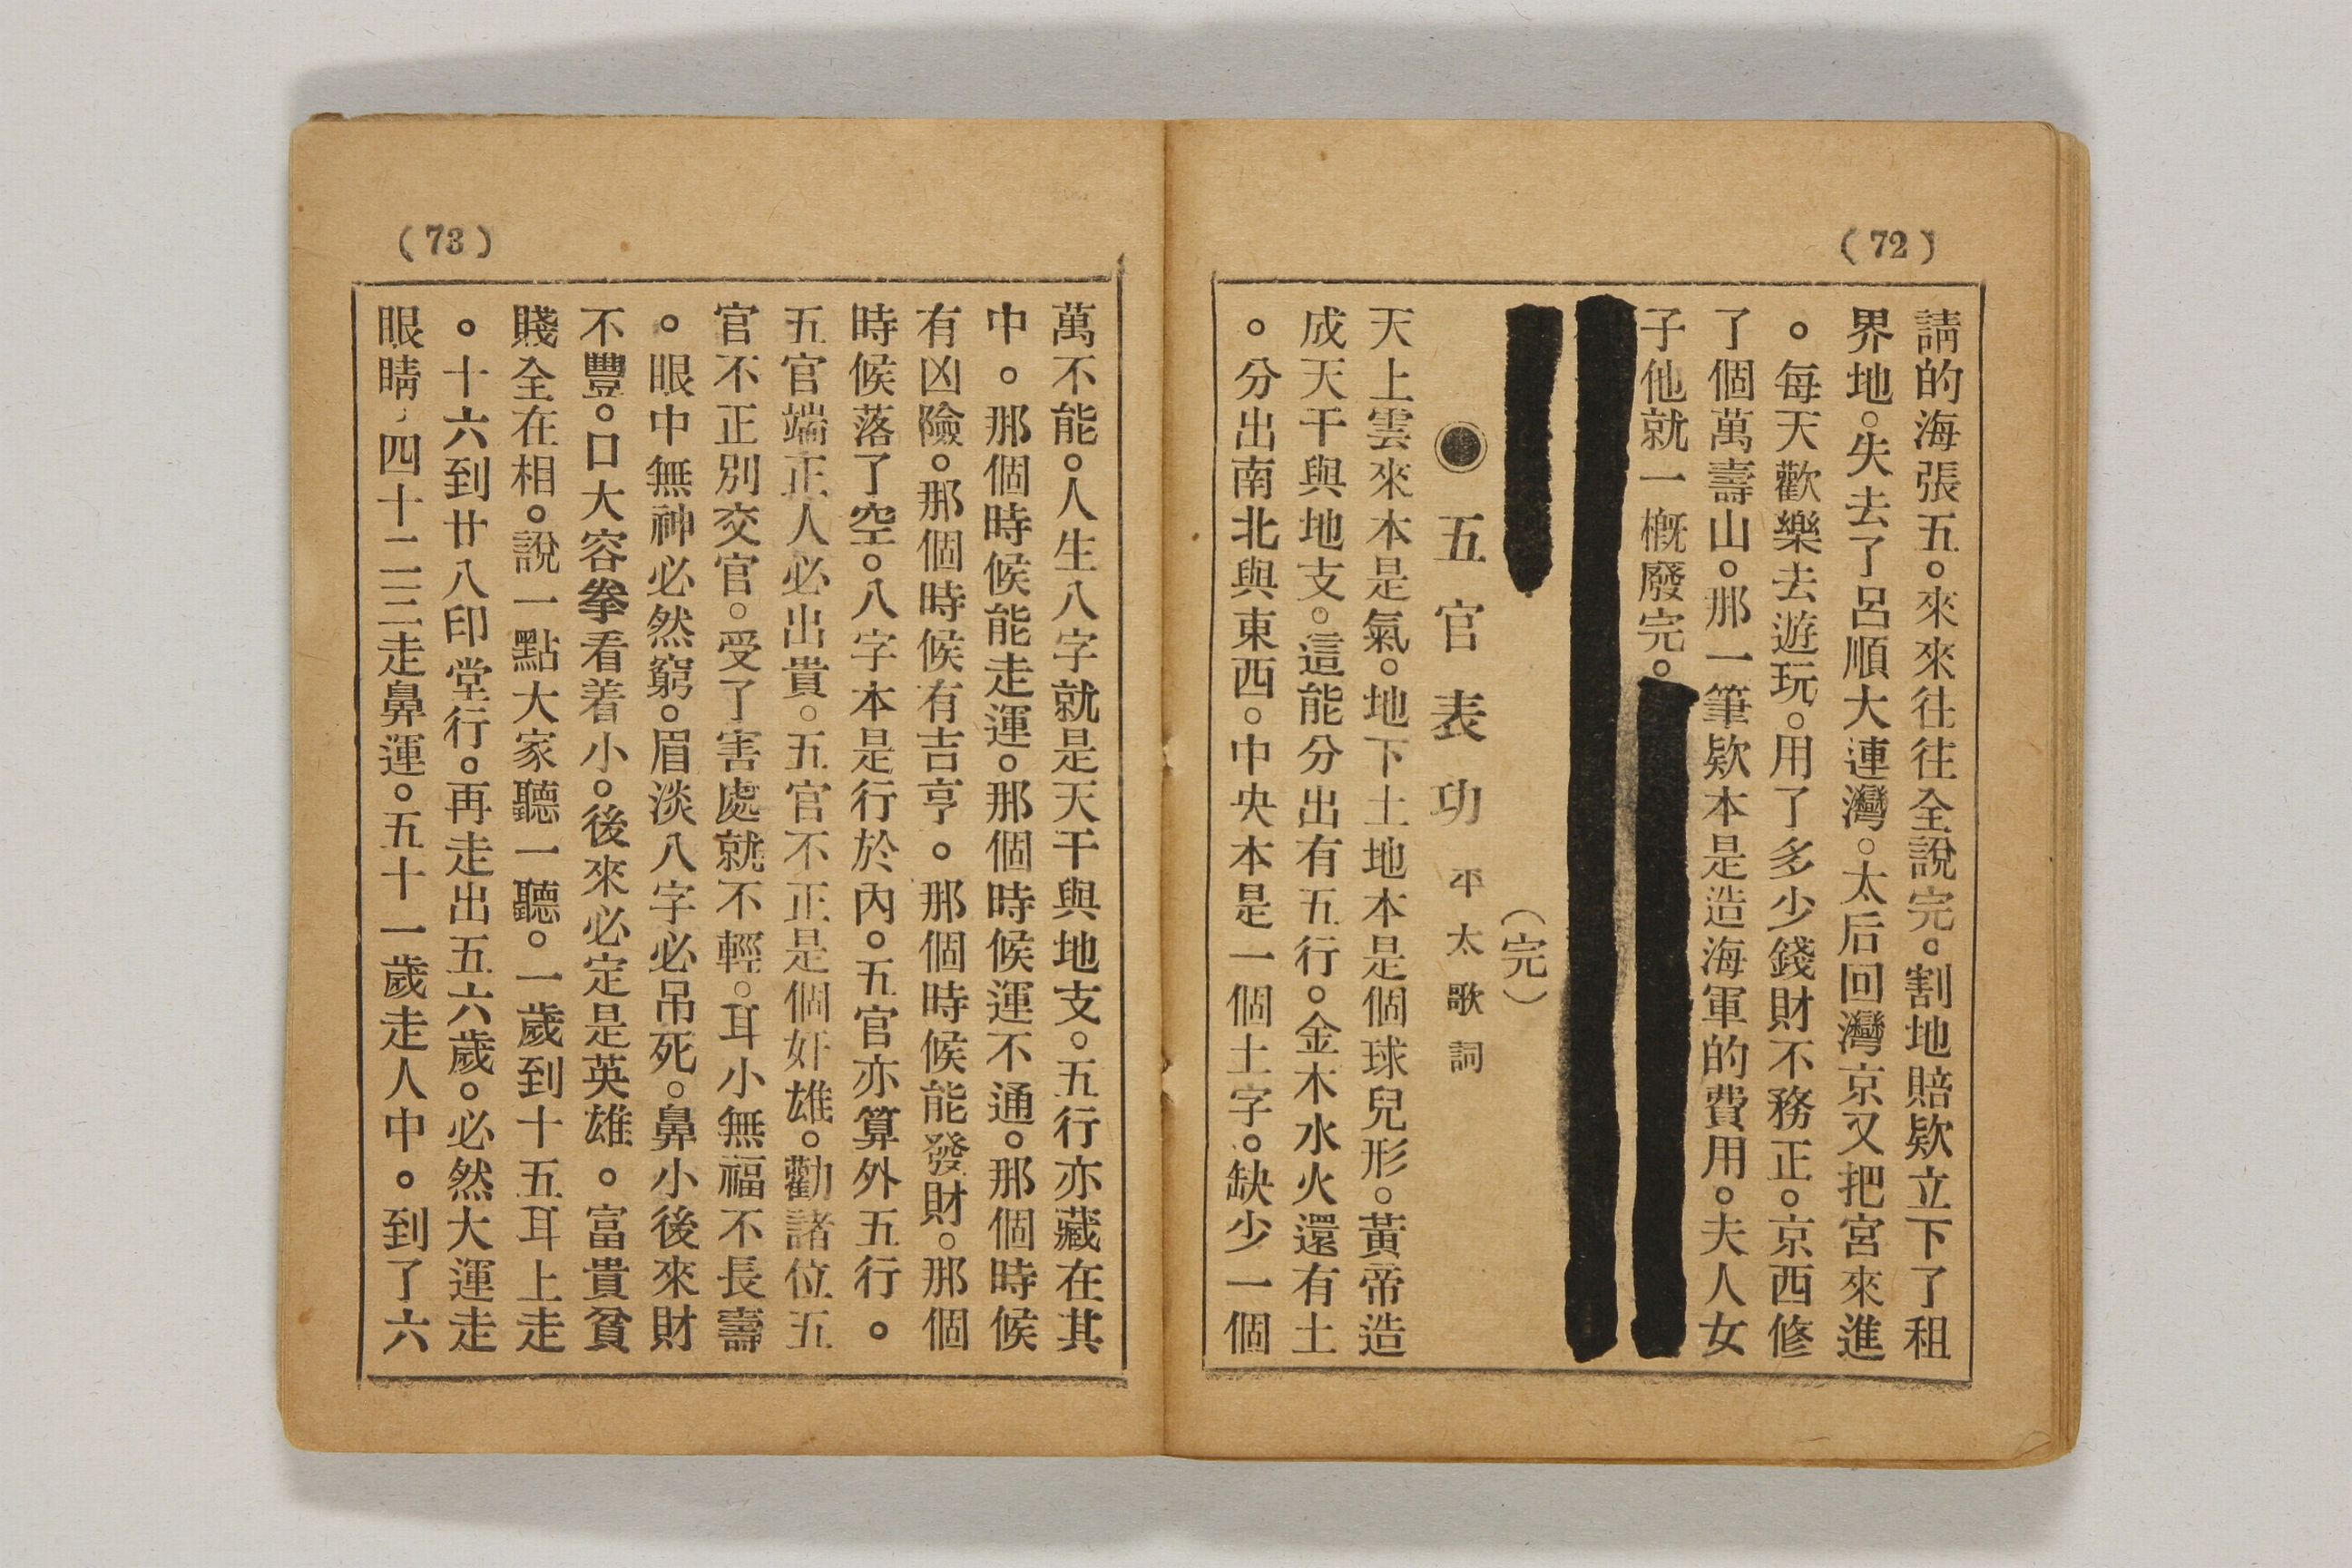 (72)
請的海張五。來來往往全說完。割地賠欵立下了租
界地。失去了呂順大連灣。太后回灣京又把宮來進
。每天歡樂去遊玩。用了多少錢財不務正。京西修
了個萬壽山。那一筆欵本是造海軍的費用。夫人女
子他就一槪廢完。
(完)
◉五官表功 平太歌詞
天上雲來本是氣。地下土地本是個球兒形。黃帝造
成天干與地支。這能分出有五行。金木水火還有土
。分出南北與東西。中央本是一個土字。缺少一個
(73)
萬不能。人生八字就是天干與地支。五行亦藏在其
中。那個時候能走運。那個時候運不通。那個時候
有凶險。那個時候有吉亨。那個時候能發財。那個
時候落了空。八字本是行於內。五官亦算外五行。
五官端正人必出貴。五官不正是個奸雄。勸諸位五
官不正別交官。受了害處就不輕。耳小無福不長壽
。眼中無神必然窮。眉淡八字必吊死。鼻小後來財
不豐。口大容拳看着小。後來必定是英雄。富貴貧
賤全在相。說一點大家聽一聽。一歲到十五耳上走
。十六到廿八印堂行。再走出五六歲。必然大運走
眼睛，四十二三走鼻運。五十一歲走人中。到了六